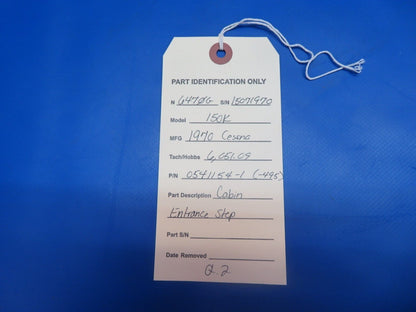 PART IDENTIFICATION ONLY
N 6470G S/N 15071970
Model 150K
MFG 1970 Cesna
Tach/Hobbs 6,051.09
P/N 0541154-1 (-495)
Part Description Cabin
Entrance Step
Part S/N
Date Removed
Q.2